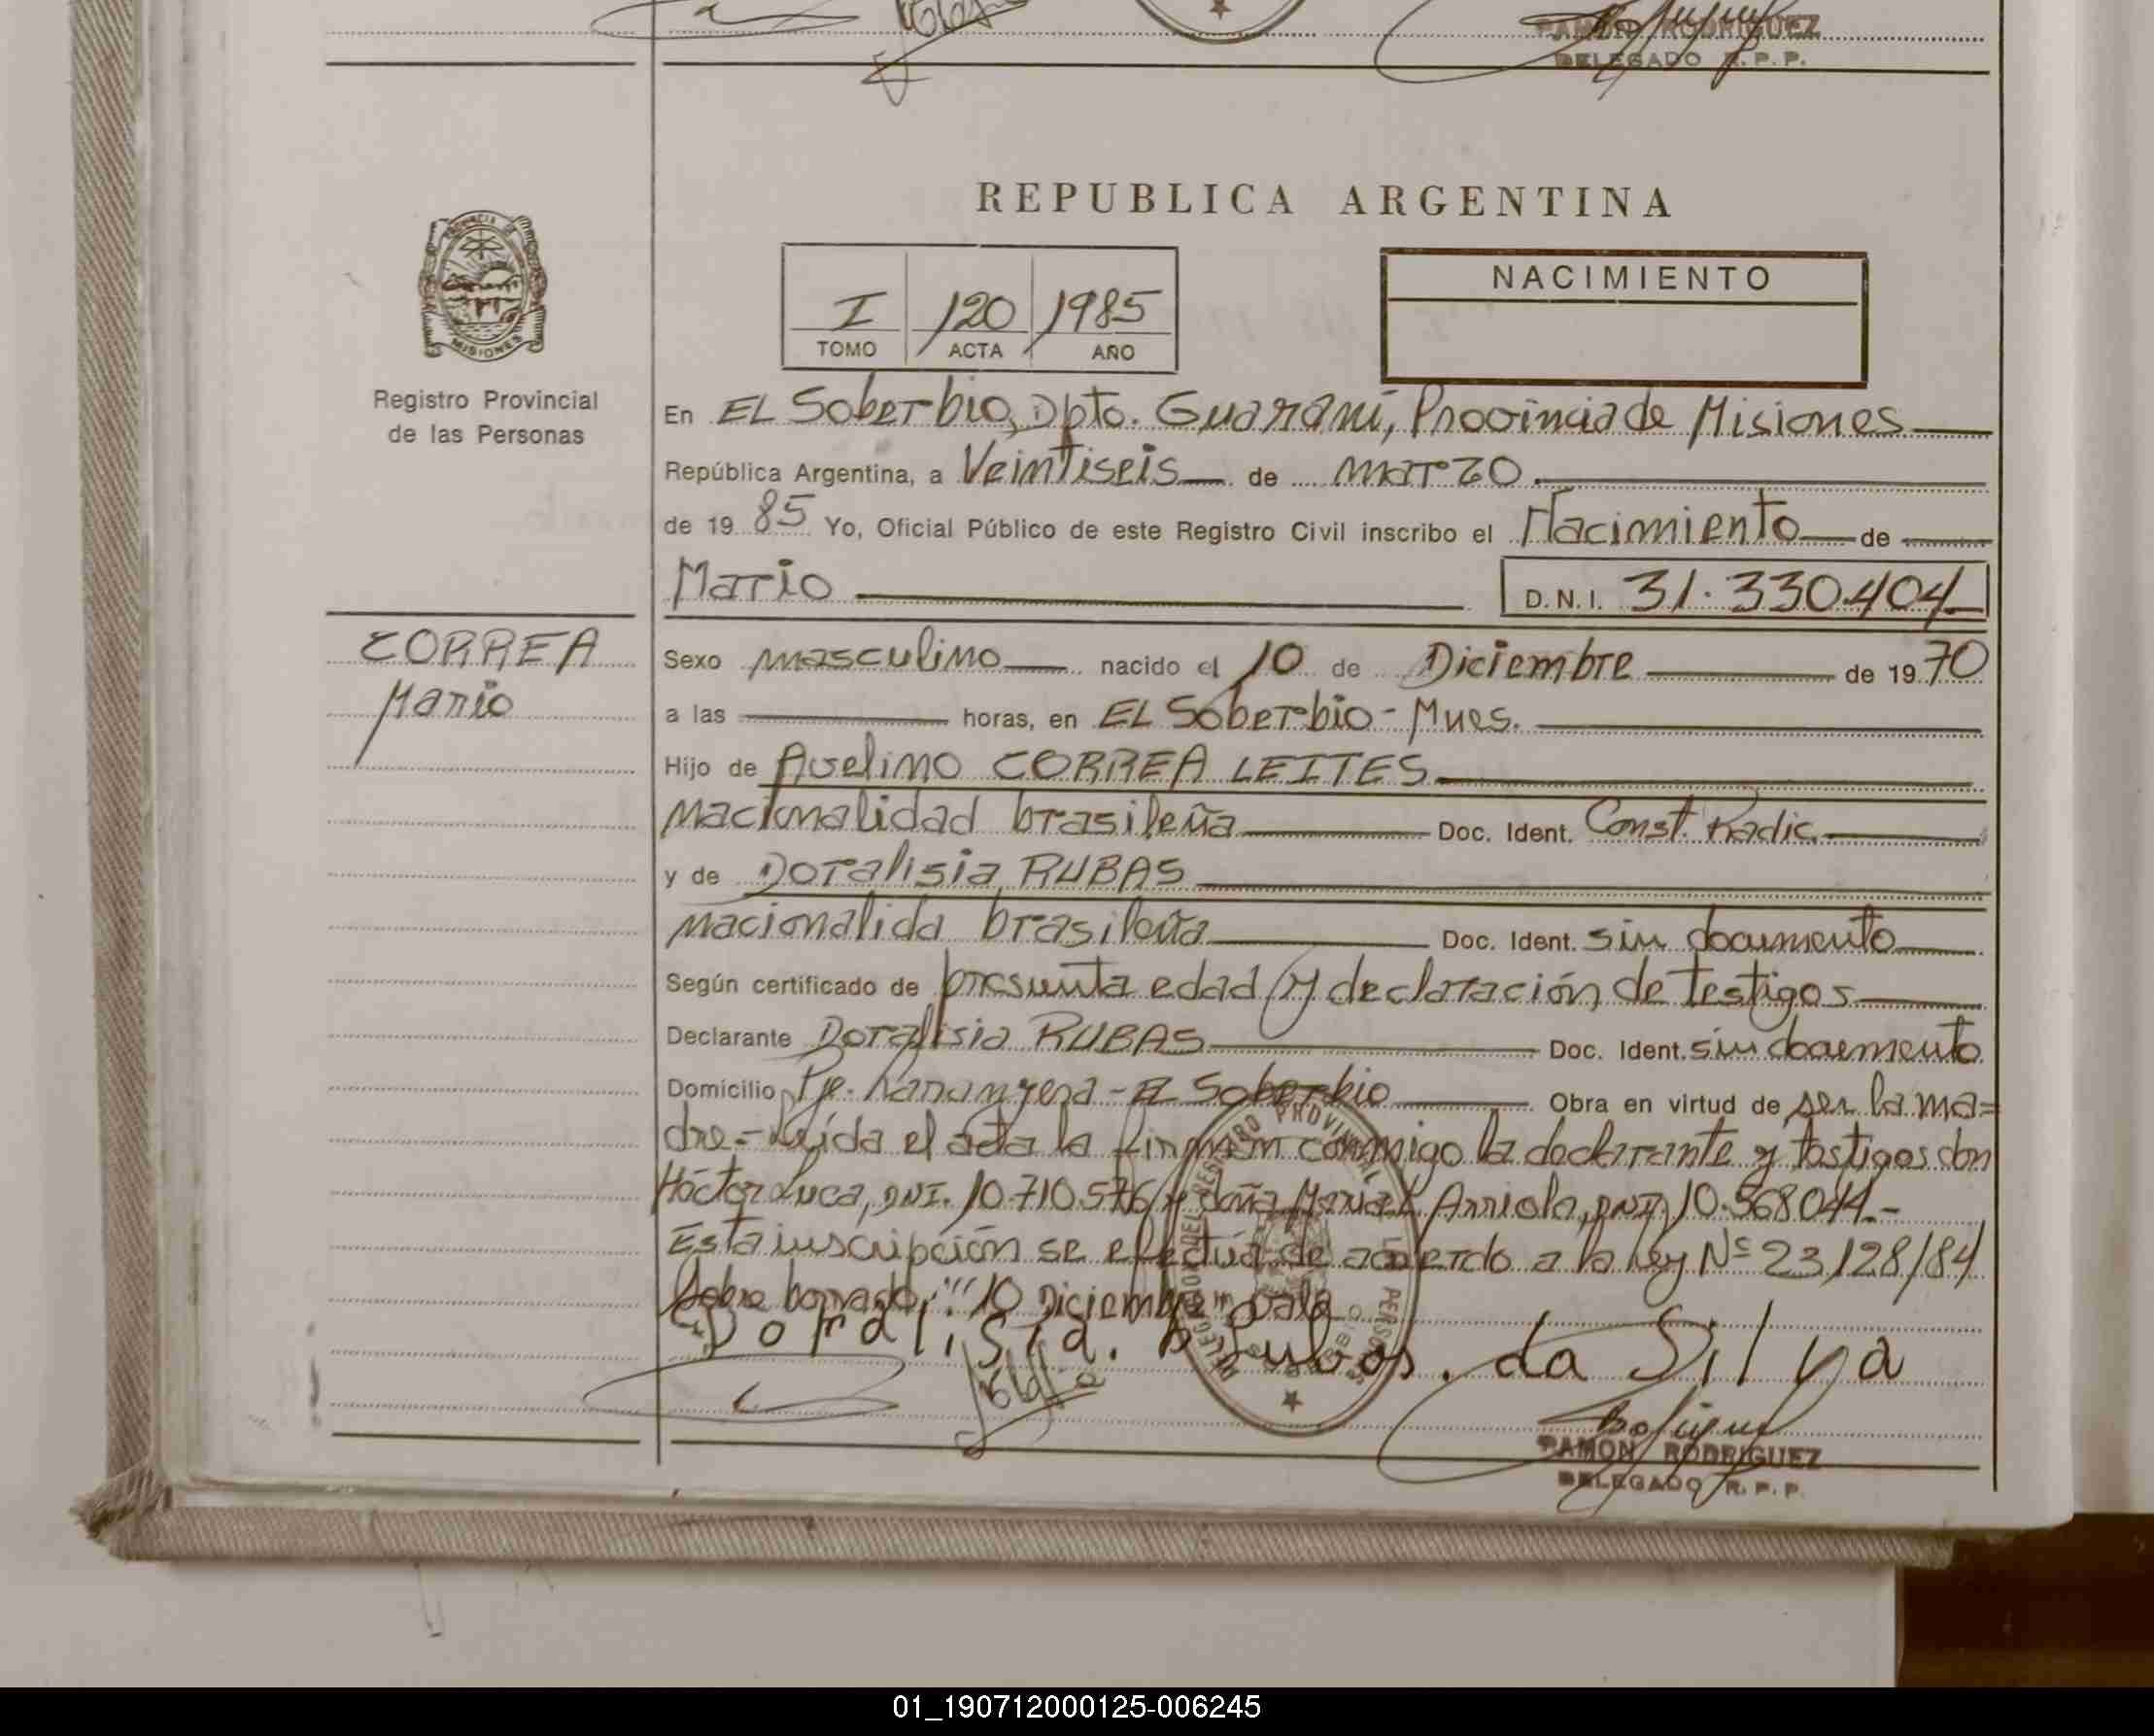 RAMON RODRIGUEZ
DELEGADO R.P.P.
REPUBLICA ARGENTINA
PROVINCIA DE
MISIONES
Registro Provincial
de las Personas
I 120 1985
TOMO ACTA AÑO
NACIMIENTO
En EL Soberbio, Dpto. Guarani, Provincia de Misiones
República Argentina, a Veintiseis de marzo
de 19 85 Yo, Oficial Público de este Registro Civil inscribo el Nacimiento de
Mario D.N.I. 31.330.404
CORREA
Mario
Sexo masculino nacido el 10 de Diciembre de 19 70
a las horas, en EL Soberbio - Mnes.
Hijo de Avelino CORREA LEITES
nacionalidad brasileña Doc. Ident. Const. Radic.
y de Doralisia RUBAS
nacionalida brasileña Doc. Ident. sin documento
Según certificado de presunta edad y declaración de testigos
Declarante Doralisia RUBAS Doc. Ident. sin documento
Domicilio El Soberbio Obra en virtud de ser la ma=
dre.- Leída el acta la firman conmigo la declarante y testigos don
Héctor Luca, DNI. 10.710.576 y doña Arriola, DNI) 10.568044.-
Esta inscripción se efectúa de acuerdo a la ley Nº 23128/84
Sobre borrado: "10 Diciembre" Vale
Doralisia. Rubas. da Silva
RAMON RODRIGUEZ
DELEGADO R.P.P.
01_190712000125-006245